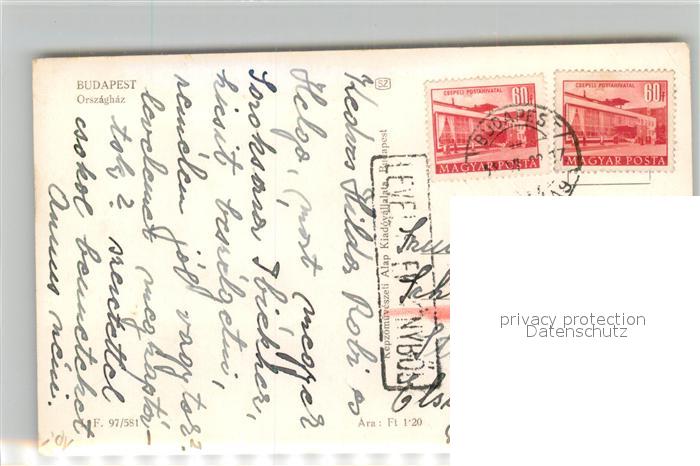 BUDAPEST
Országház
SZ
CSEPELI POSTAHIVATAL
60f
MAGYAR POSTA
CSEPELI POSTAHIVATAL
60f
MAGYAR POSTA
BUDAPEST
Kedves Hilda Robi és
Helga, most megyek
Soroksárra Ibiékhez,
kicsit beszélgetni,
remélem jól vagytok?
levelemet megkaptá-
tok? szeretettel
csókol benneteket
Annus néni.
Képzőművészeti Alap Kiadóvállalata, Budapest
LEVÉLSZEKRÉNYBŐL
F. 97/581
Ára: Ft 1·20
privacy protection
Datenschutz